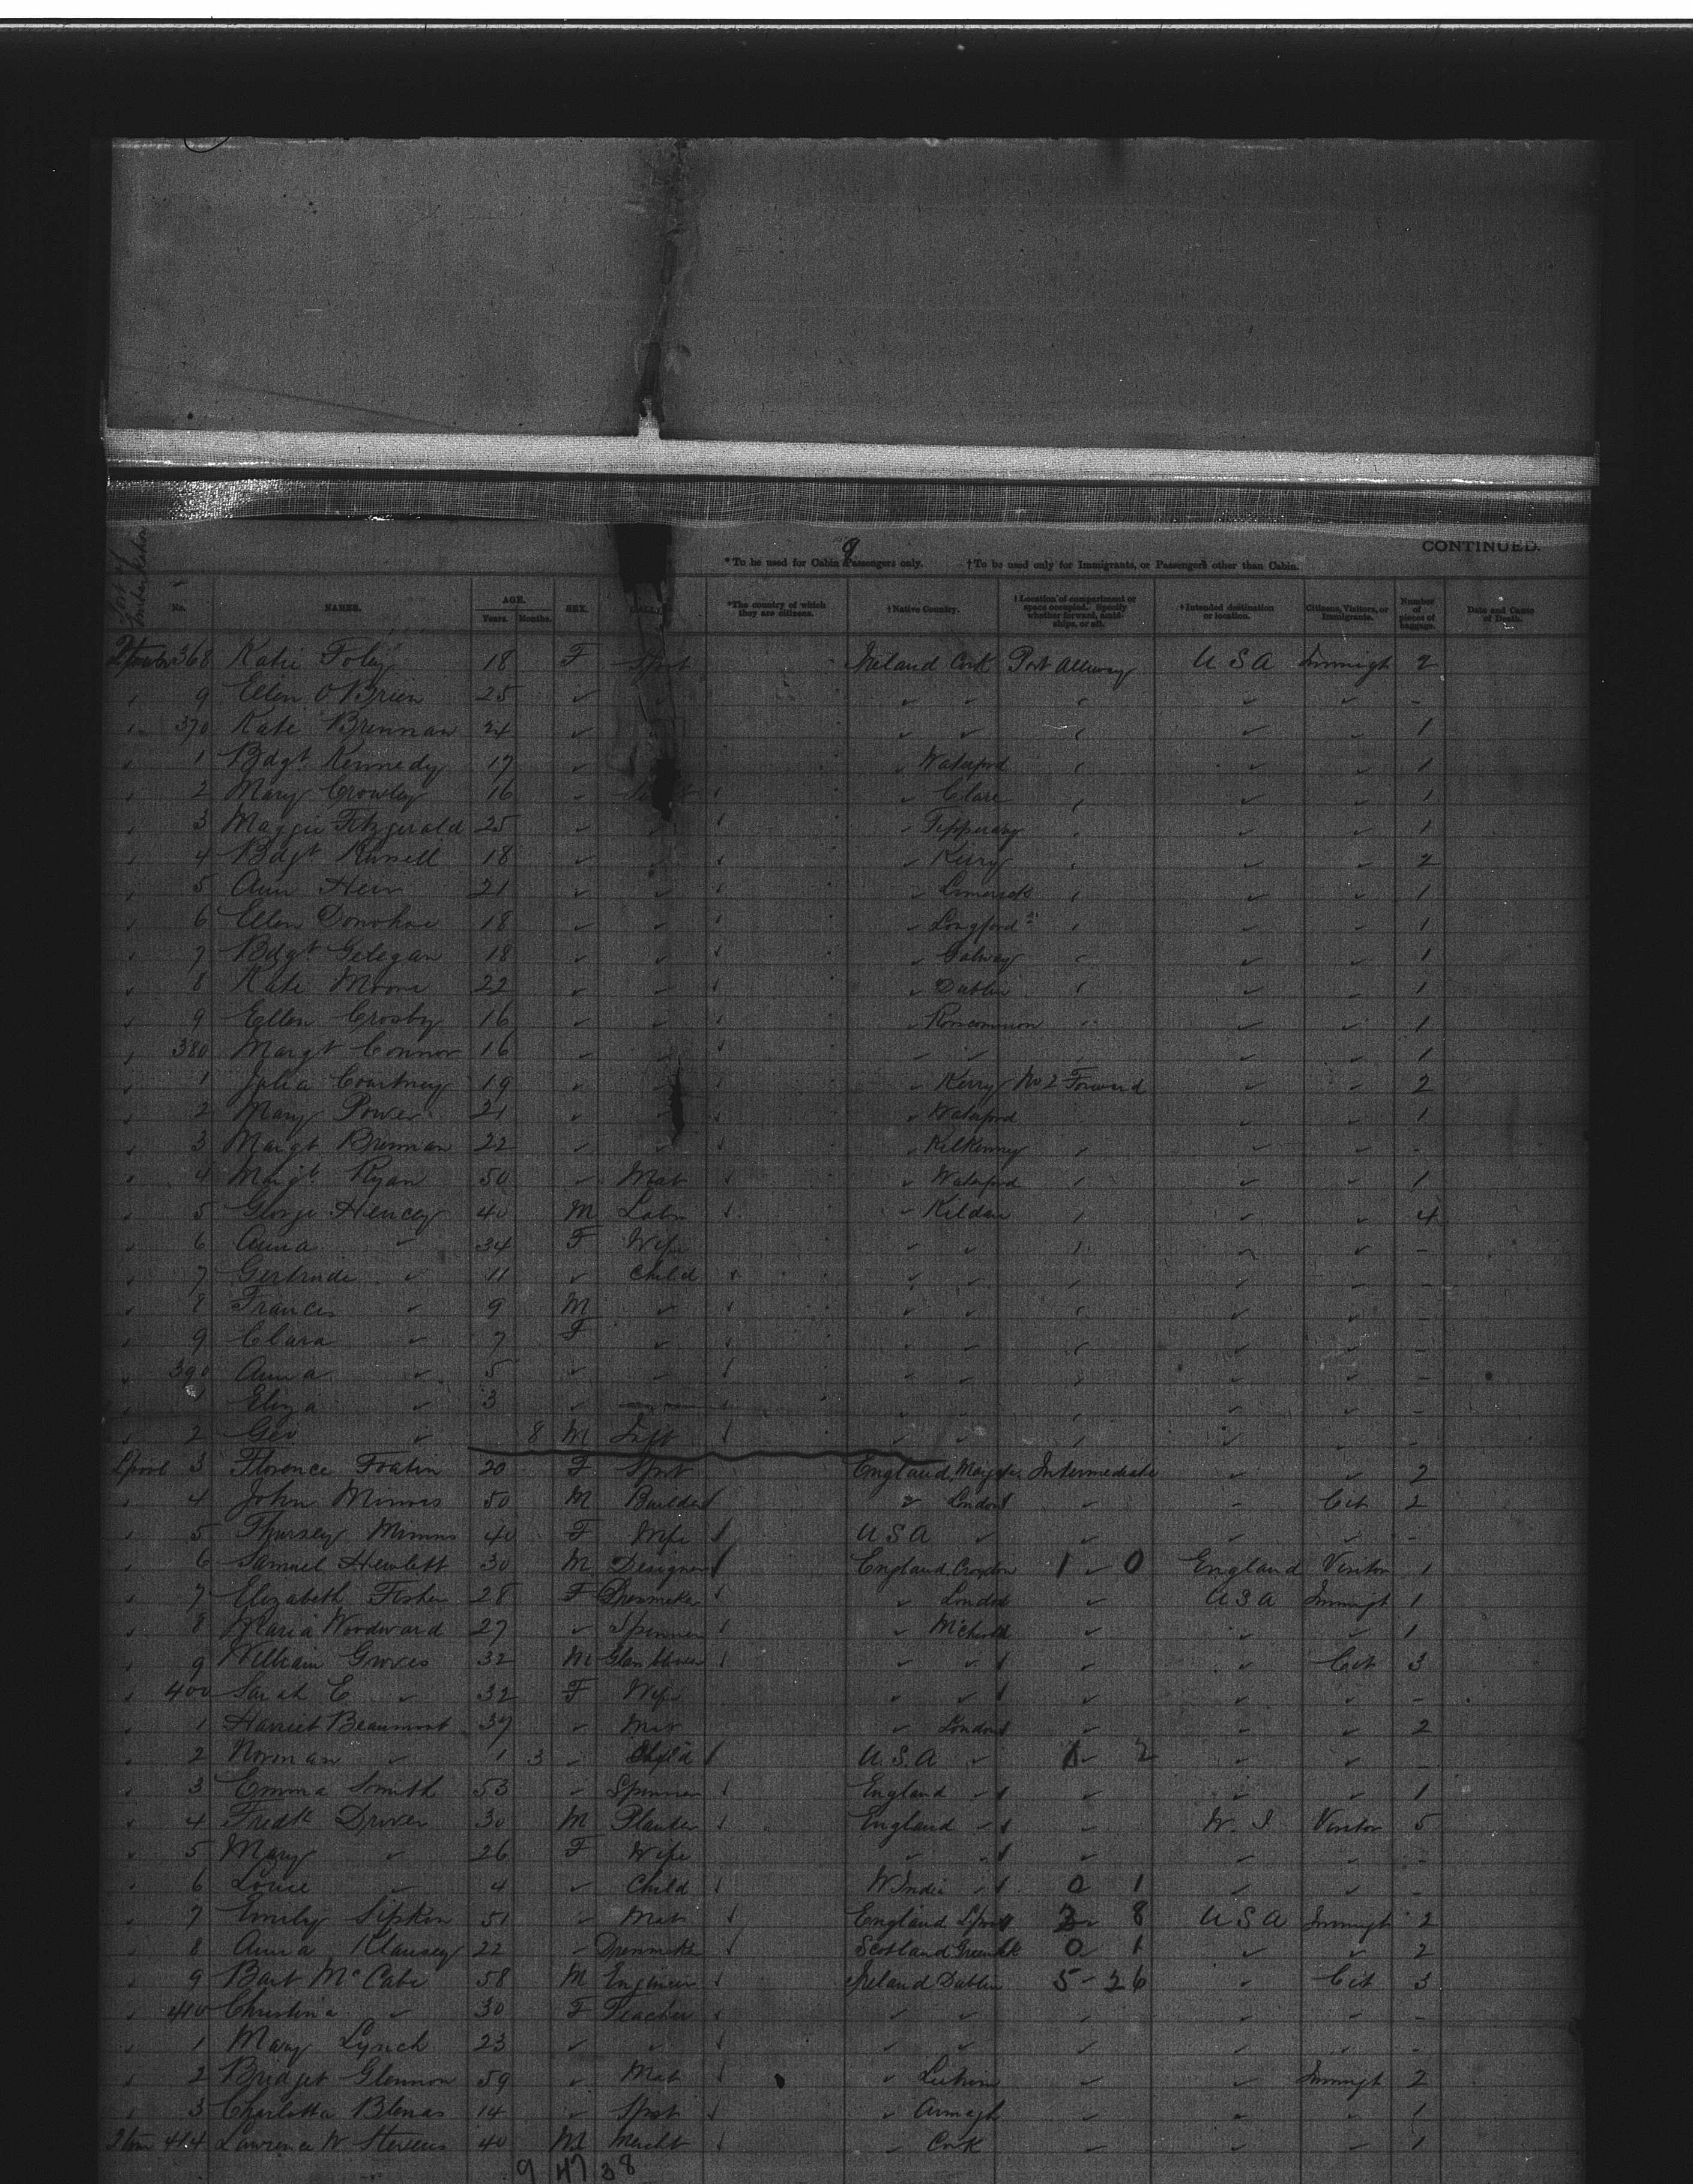 9
CONTINUED.
*To be used for Cabin Passengers only. †To be used only for Immigrants, or Passengers other than Cabin.
Port of Embarkation No. NAMES. AGE. Years. Months. SEX. CALLING *The country of which they are citizens. †Native Country. †Location of compartment or space occupied. Specify whether forward, amidships, or aft. †Intended destination or location. Citizens, Visitors, or Immigrants. Number of pieces of baggage. Date and Cause of Death.
368 Katie Foley 18 F Spst Ireland Cork Port Alleway U S A Immigt 2
9 Ellen O'Brien 25 ✓ ✓ ✓ ✓ ✓ -
370 Kate Brennan 24 ✓ ✓ ✓ ✓ ✓ 1
1 Bdgt Kennedy 17 ✓ ✓ Waterford ✓ ✓ 1
2 Mary Crowley 16 ✓ ✓ Clare ✓ ✓ 1
3 Maggie Fitzgerald 25 ✓ ✓ ✓ Tipperary ✓ ✓ 1
4 Bdgt Russell 18 ✓ ✓ ✓ Kerry ✓ ✓ 2
5 Ann 21 ✓ ✓ ✓ Limerick ✓ ✓ 1
6 Ellen Donohoe 18 ✓ ✓ ✓ Longford ✓ ✓ 1
7 Bdgt Gelegan 18 ✓ ✓ ✓ Galway ✓ ✓ 1
8 Kate Moore 22 ✓ ✓ ✓ Dublin ✓ ✓ 1
9 Ellen Crosby 16 ✓ ✓ ✓ Roscommon ✓ ✓ 1
380 Margt Connor 16 ✓ ✓ ✓ ✓ ✓ ✓ 1
1 Julia Courtney 19 ✓ ✓ ✓ Kerry No 2 Forward ✓ ✓ 2
2 Mary Power 21 ✓ ✓ ✓ Waterford ✓ ✓ 1
3 Margt Brennan 22 ✓ ✓ ✓ Kilkenny ✓ ✓ -
4 Margt Ryan 50 ✓ Mat ✓ Waterford ✓ ✓ 1
5 George Hencey 40 M Labr ✓ Kildare ✓ ✓ 4
6 Anna ✓ 34 F Wife ✓ ✓ ✓ ✓ -
7 Gertrude ✓ 11 ✓ Child ✓ ✓ ✓ ✓ -
8 Frances ✓ 9 M ✓ ✓ ✓ ✓ ✓ -
9 Clara ✓ 7 F ✓ ✓ ✓ ✓ ✓ -
390 Anna ✓ 5 ✓ ✓ ✓ ✓ ✓ ✓ -
1 Eliza ✓ 3 ✓ ✓ ✓ ✓ ✓ -
2 Geo ✓ 8 M Inft ✓ ✓ ✓ -
Lpool 3 Florence 20 F Spst England Intermediate ✓ ✓ 2
4 John 50 M Builder ✓ London ✓ - Cit 2
5 40 F Wife U S A ✓ ✓ ✓ ✓ -
6 Samuel Hewlett 30 M Designer England Croydon 1 - 0 England Visitor 1
7 Elizabeth Fisher 28 F Dressmaker ✓ London ✓ U S A Immigt 1
8 Maria Woodward 27 ✓ Spinner ✓ ✓ ✓ ✓ 1
9 William Groves 32 M Glass blower ✓ ✓ ✓ ✓ Cit 3
400 Sarah E ✓ 32 F Wife ✓ ✓ ✓ ✓ ✓ -
1 Harriet Beaumont 37 ✓ Mat ✓ London ✓ ✓ ✓ 2
2 Norman ✓ 1 3 ✓ Child U.S.A ✓ 1 - 2 ✓ ✓ -
3 Emma Smith 53 ✓ Spinner England ✓ ✓ ✓ ✓ 1
4 Fredk Driver 30 M Planter England ✓ ✓ W. I Visitor 5
5 Mary ✓ 26 F Wife ✓ ✓ ✓ ✓ ✓ -
6 Louie ✓ 4 ✓ Child W India ✓ 0 1 ✓ ✓ -
7 Emily Sipkin 51 ✓ Mat England Lpool 3 - 8 U S A Immigt 2
8 Anna Klausey 22 ✓ Dressmaker Scotland Greenock 0 1 ✓ ✓ 2
9 Bart McCabe 58 M Engineer Ireland Dublin 5 - 26 ✓ Cit 3
410 Christina ✓ 30 F Teacher ✓ ✓ ✓ ✓ ✓ -
1 Mary Lynch 23 ✓ ✓ ✓ ✓ ✓ ✓ ✓ -
2 Bridget Glennon 59 ✓ Mat ✓ Leitrim ✓ ✓ Immigt 2
3 Charlotta 14 ✓ Spst ✓ Armagh ✓ ✓ ✓ 1
414 Lawrence W Stevens 40 M Mercht ✓ Cork ✓ ✓ ✓ 1
9 47 38